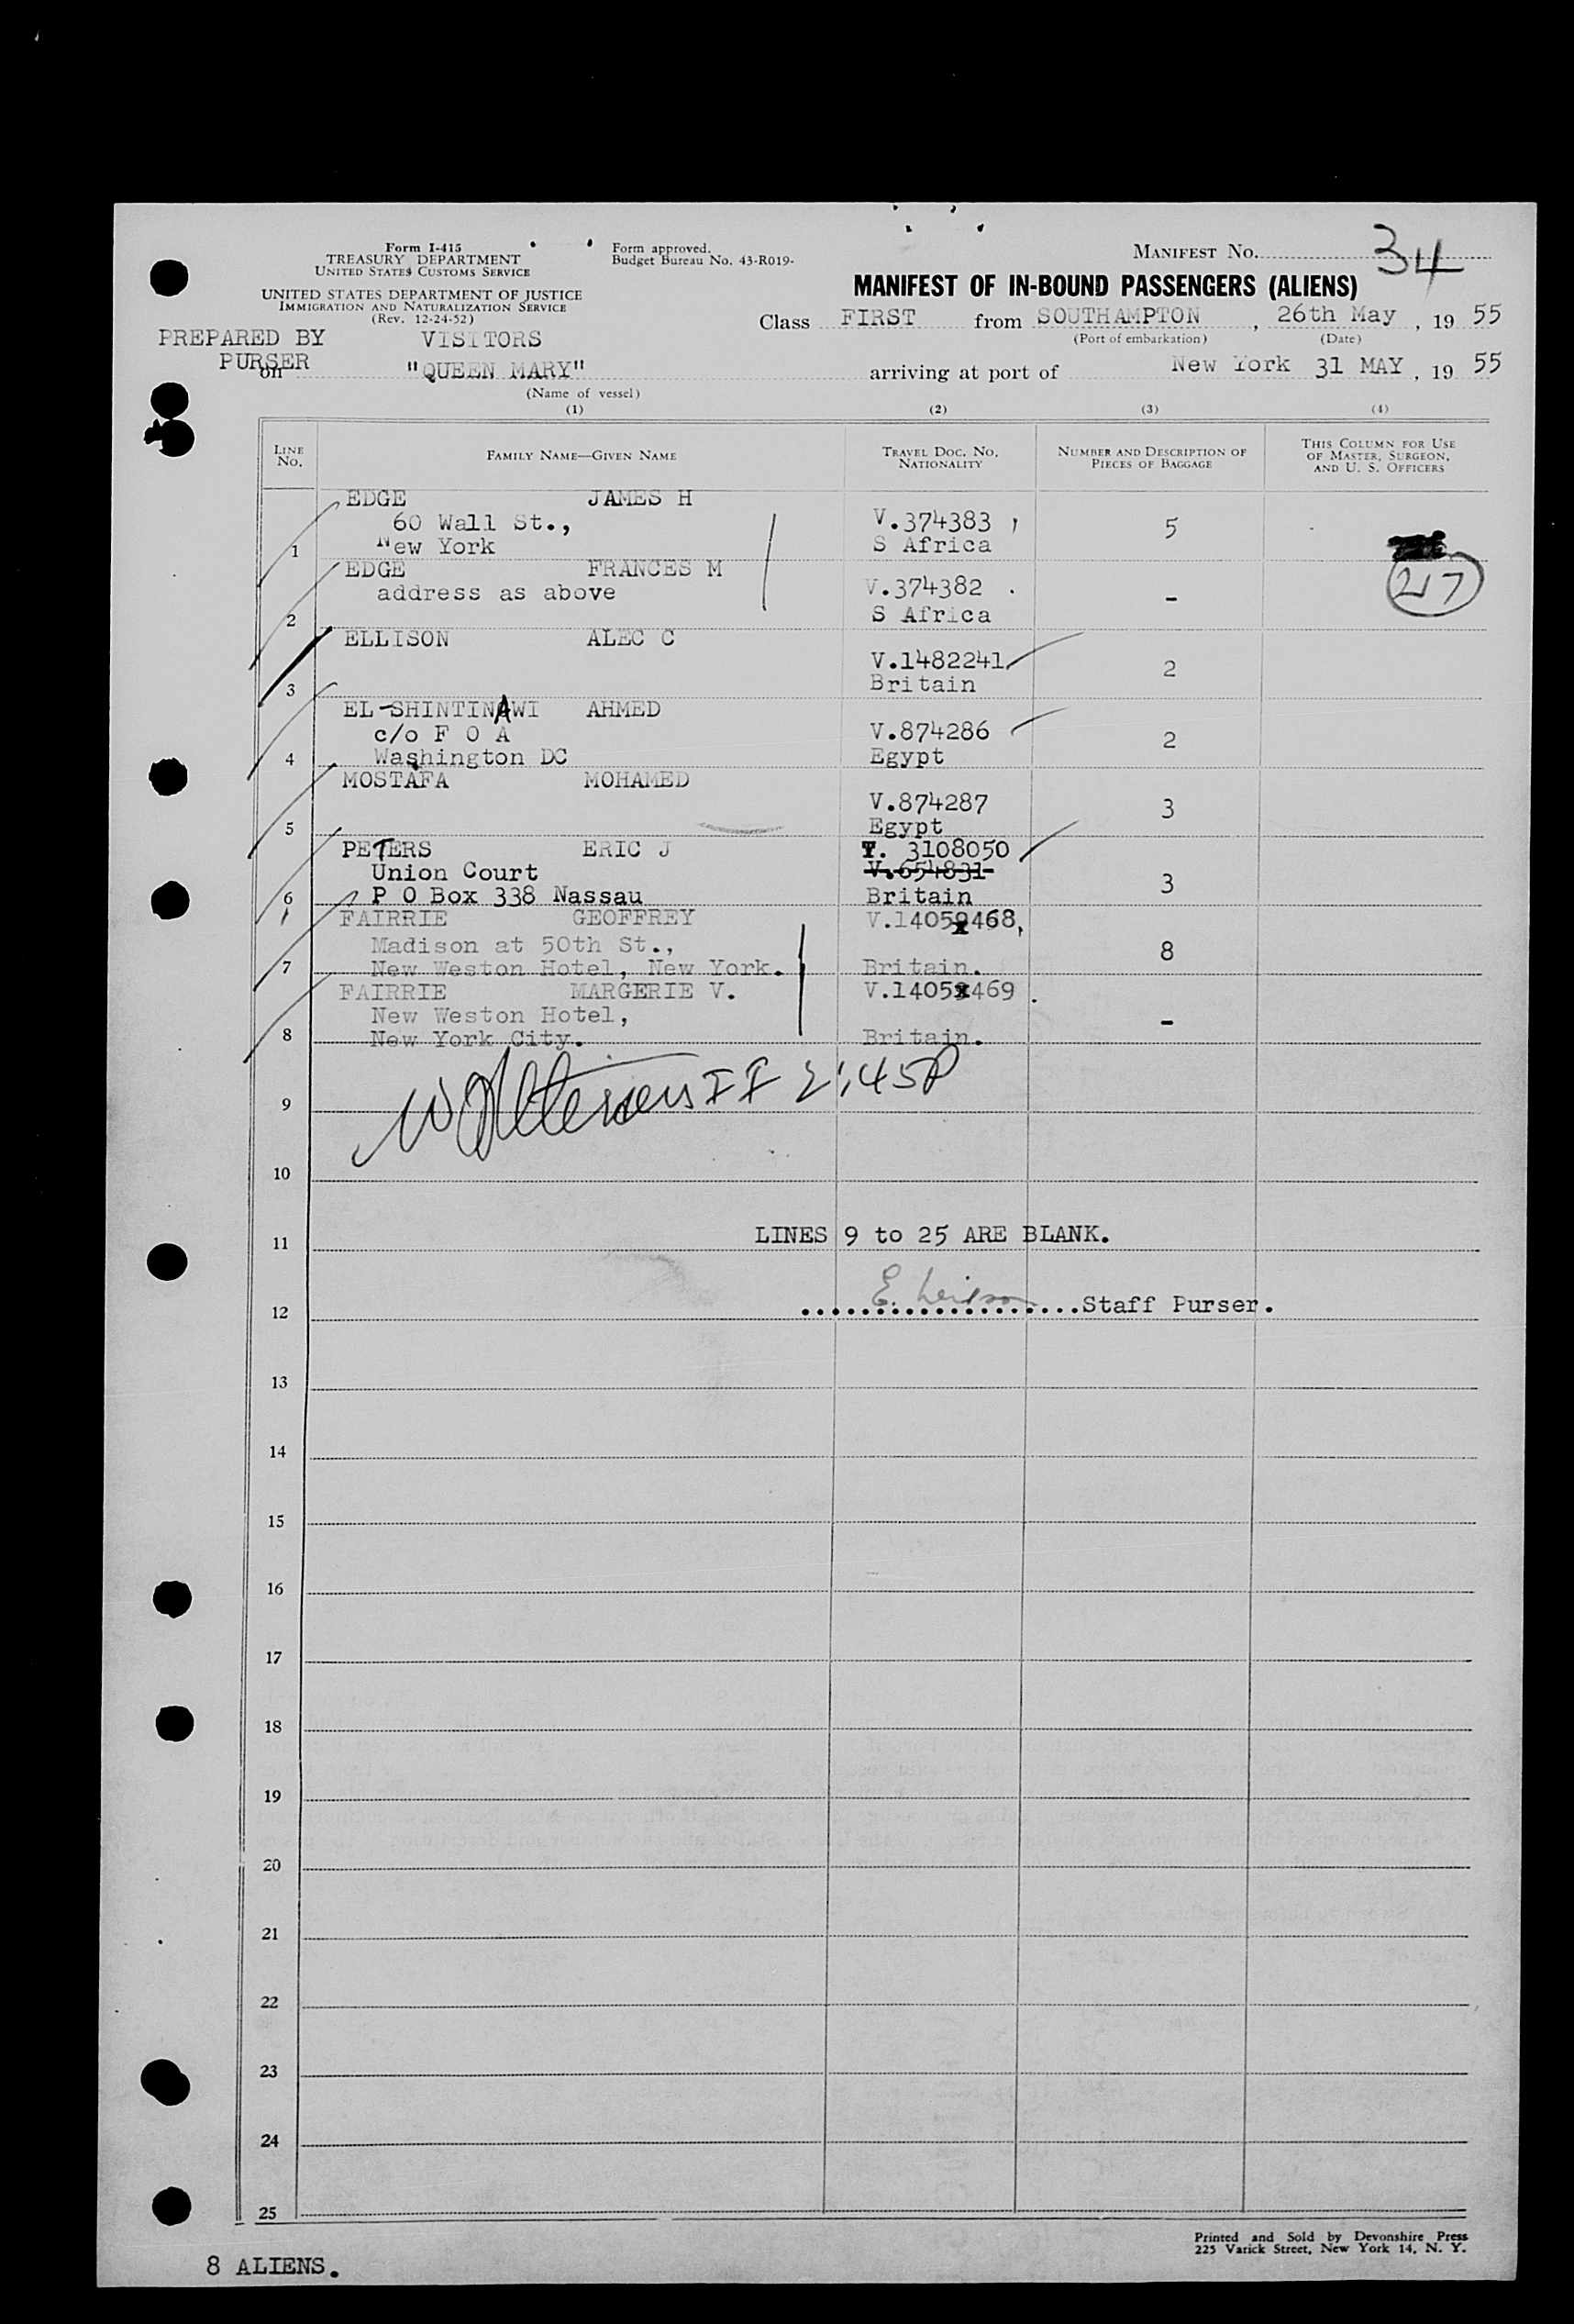 Form I-415
TREASURY DEPARTMENT
UNITED STATES CUSTOMS SERVICE
UNITED STATES DEPARTMENT OF JUSTICE
IMMIGRATION AND NATURALIZATION SERVICE
(Rev. 12-24-52)
Form approved.
Budget Bureau No. 43-R019-
MANIFEST No. 34
MANIFEST OF IN-BOUND PASSENGERS (ALIENS)
Class FIRST from SOUTHAMPTON, 26th May, 19 55
(Port of embarkation) (Date)
PREPARED BY PURSER
VISITORS
on "QUEEN MARY" arriving at port of New York 31 MAY, 19 55
(Name of vessel)
(1) (2) (3) (4)
LINE No. FAMILY NAME—GIVEN NAME TRAVEL DOC. No. NATIONALITY NUMBER AND DESCRIPTION OF PIECES OF BAGGAGE THIS COLUMN FOR USE OF MASTER, SURGEON, AND U. S. OFFICERS
EDGE JAMES H
60 Wall St., V.374383 5
1 New York S Africa
EDGE FRANCES M
address as above V.374382 - 217
2 S Africa
ELLISON ALEC C
V.1482241 2
3 Britain
EL-SHINTINAWI AHMED
c/o F O A V.874286 2
4 Washington DC Egypt
MOSTAFA MOHAMED
V.874287 3
5 Egypt
PETERS ERIC J T. 3108050
Union Court V.654831 3
6 P O Box 338 Nassau Britain
FAIRRIE GEOFFREY V.1405468,
Madison at 50th St., 8
7 New Weston Hotel, New York. Britain.
FAIRRIE MARGERIE V. V.1405469
New Weston Hotel, -
8 New York City. Britain.
II 2:45P
9
10
11 LINES 9 to 25 ARE BLANK.
12 Staff Purser.
13
14
15
16
17
18
19
20
21
22
23
24
25
Printed and Sold by Devonshire Press
225 Varick Street, New York 14, N. Y.
8 ALIENS.